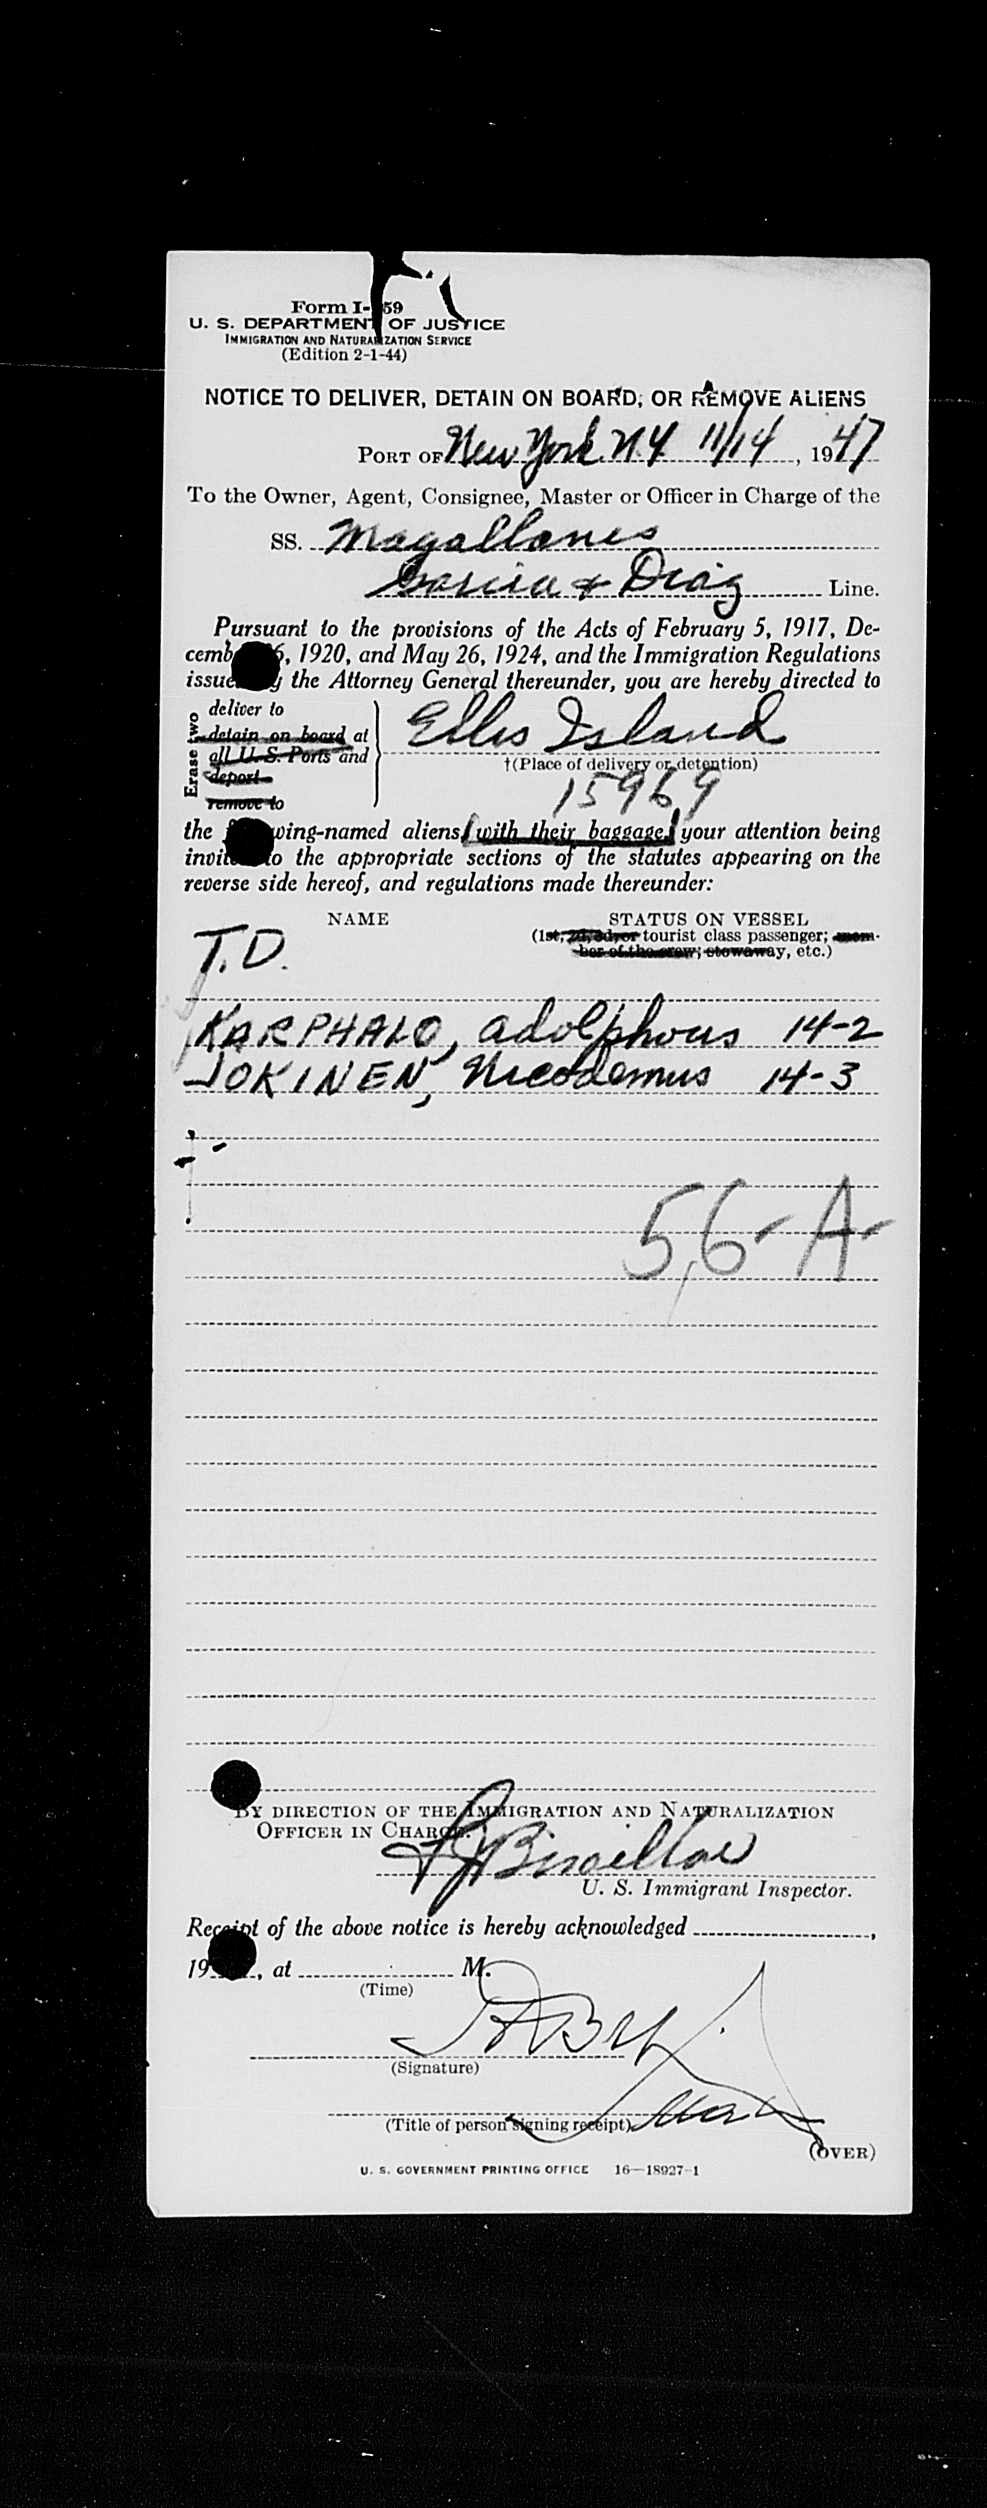 Form I-259
U. S. DEPARTMENT OF JUSTICE
IMMIGRATION AND NATURALIZATION SERVICE
(Edition 2-1-44)
NOTICE TO DELIVER, DETAIN ON BOARD, OR REMOVE ALIENS
PORT OF New York N.Y 11/14, 1947
To the Owner, Agent, Consignee, Master or Officer in Charge of the
SS. Magallanes
Garcia & Diaz Line.
Pursuant to the provisions of the Acts of February 5, 1917, De-
cember 26, 1920, and May 26, 1924, and the Immigration Regulations
issued by the Attorney General thereunder, you are hereby directed to
Erase two
deliver to
detain on board at
all U. S. Ports and
deport
remove to
Ellis Island
†(Place of delivery or detention)
15969
the following-named aliens (with their baggage) your attention being
invited to the appropriate sections of the statutes appearing on the
reverse side hereof, and regulations made thereunder:
NAME STATUS ON VESSEL
(1st, 2d, 3d, or tourist class passenger; mem-
ber of the crew; stowaway, etc.)
T.D.
KARPHALO, Adolphous 14-2
JOKINEN, Nicodemus 14-3
56-A-
BY DIRECTION OF THE IMMIGRATION AND NATURALIZATION
OFFICER IN CHARGE.
U. S. Immigrant Inspector.
Receipt of the above notice is hereby acknowledged ,
19 , at M.
(Time)
(Signature)
(Title of person signing receipt)
(OVER)
U. S. GOVERNMENT PRINTING OFFICE 16—18927-1